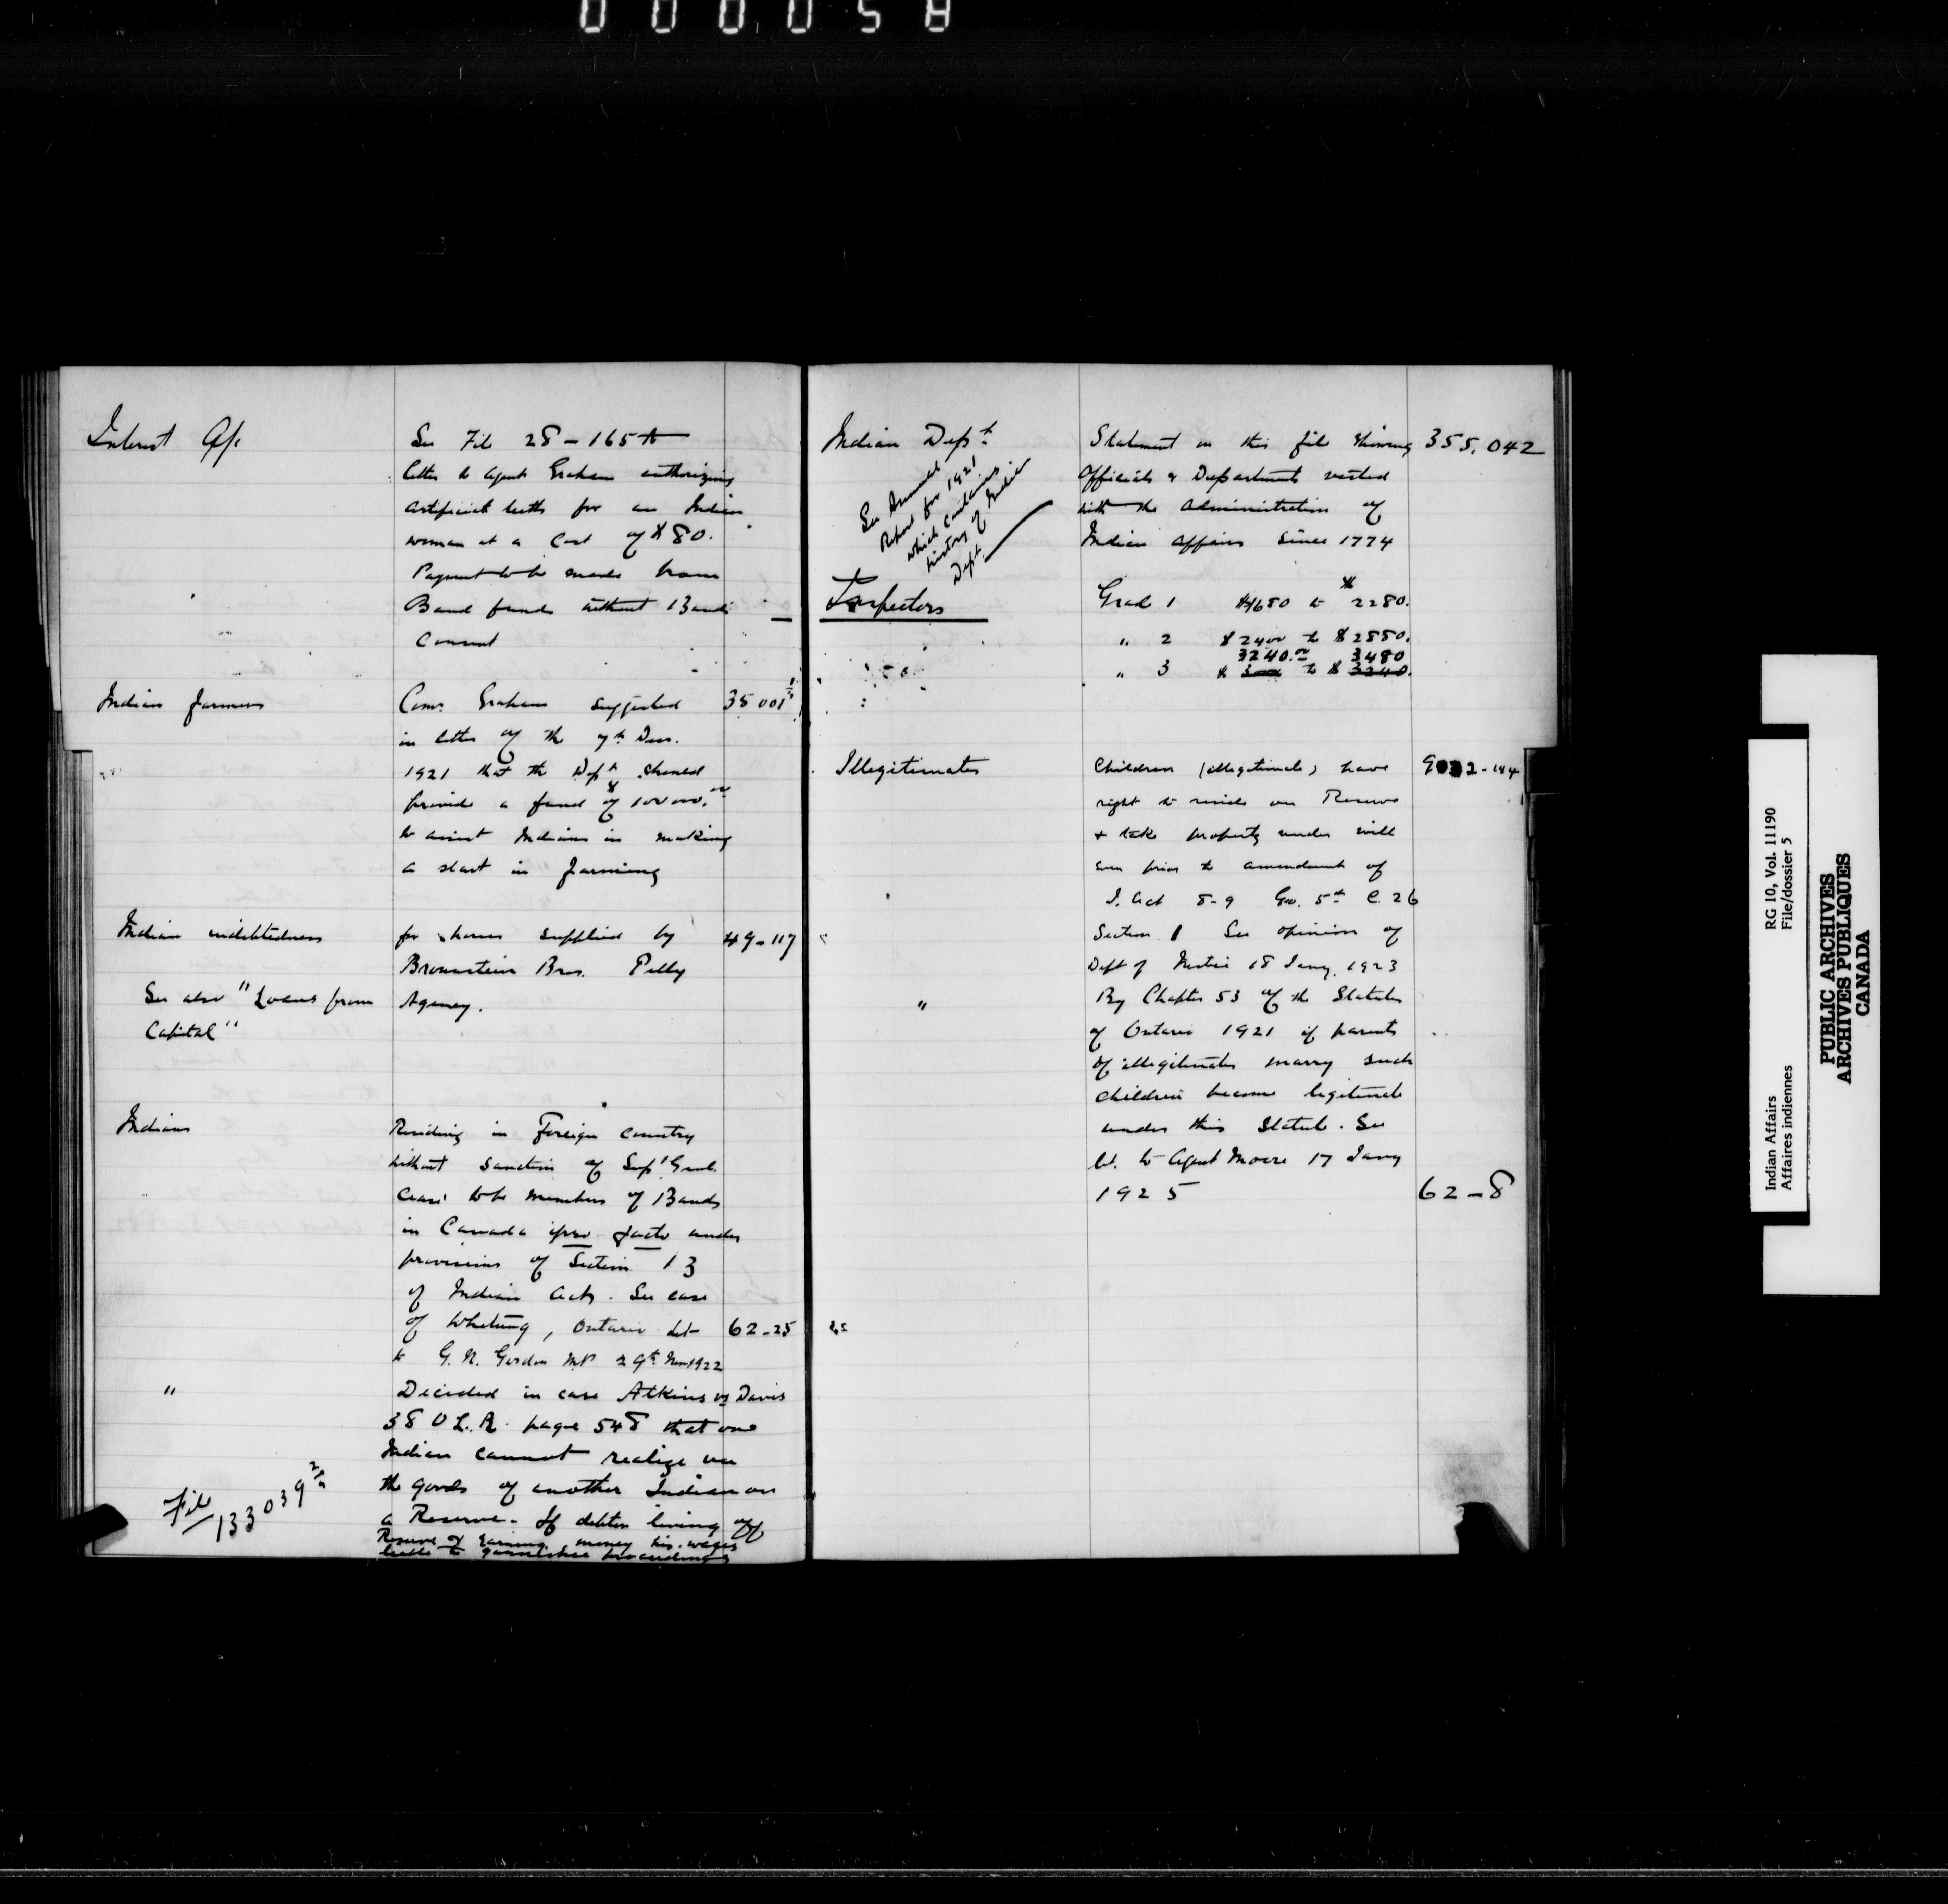 000058
Interest a/c
See File 28-165
letter to agent Graham authorizing
artificial teeth for an Indian
woman at a cost of $80.
Payment to be made from
Band funds without Band
Consent
Indian farmers
Comr. Graham suggested 35 001
in letter of the 7th Decr.
1921 that the Dept. should
provide a fund of $100 000.00
to assist Indians in making
a start in farming
Indian indebtedness
for horses supplied by 49-117
Brownstein Bros. Pelly
Agency.
See also "Loans from
Capital"
Indians
Residing in Foreign country
without sanction of Supt Genl.
cease to be members of Bands
in Canada ipso facto under
provisions of Section 13
of Indian Act. See case
of Whetung, Ontario let 62-25
to G. N. Gordon MP 29th Nov 1922
"
Decided in case Atkins vs Davis
38 O L. R. page 548 that one
Indian cannot realize on
the goods of another Indian on
a Reserve. If debtor living off
Reserve & earning money his wages
liable to garnishee proceedings
File
133 039
Indian Dept.
See Annual
Report for 1921
which contains
history of Indian
Dept.
Statement on this file showing 355,042
Officials & Departments vested
with the administration of
Indian affairs since 1774
Inspectors
Grade 1 $1680 to $2280.
" 2 $2400 to $2880.
3240.00 3480
" 3 $ to $ 3240.
Illegitimates
Children (illegitimate) have
right to reside on Reserve
+ take property under will
even prior to amendment of
I. Act 8-9 Geo. 5th C. 26
Section 1 See opinion of
Dept of Justice 18 Jany. 1923
"
By Chapter 53 of the Statutes
of Ontario 1921 if parents
of illegitimates marry such
children become legitimate
under this Statute. See
let. to Agent Moore 17 Jany
1925 62-8
Indian Affairs RG 10, Vol. 11190
Affaires indiennes File/dossier 5
PUBLIC ARCHIVES
ARCHIVES PUBLIQUES
CANADA